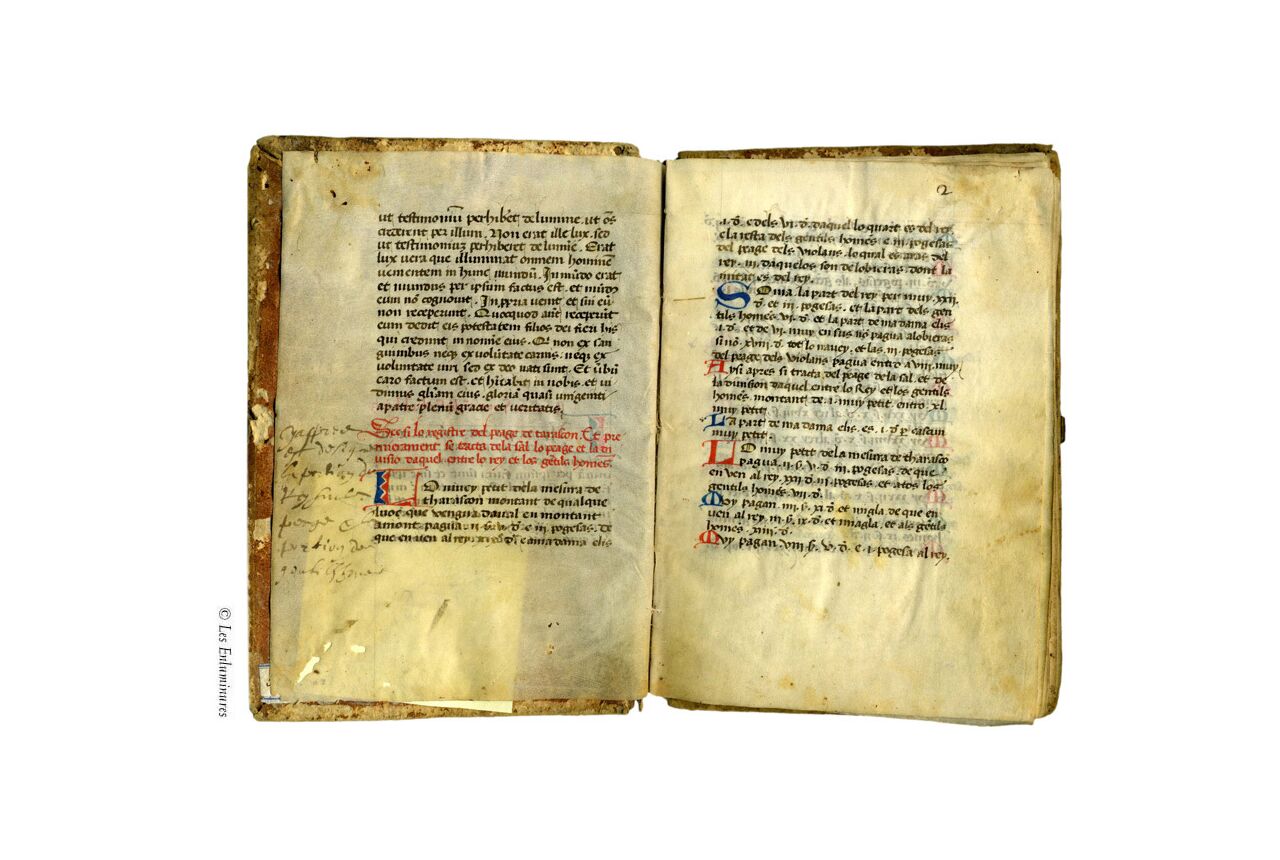 ut testimoniū perhibēt de lumine. ut oēs
crederent per illum. Non erat ille lux. sed
ut testimoniuz perhiberet de lumīe. Erat
lux vera que illuminat omnem hominem
venientem in hunc mundū. In mūdo erat
et mundus per ipsum factus est. et mūdus
eum nō cognovit. In ppria venit et sui eū
non receperunt. Quocquod aūt receperūt
eum dedit eis potestatem filios dei fieri his
qui credunt in nomīe eius. Qi non ex san
guinibus neqȝ ex volūtate carnis. neqȝ ex
voluntate viri sed ex deo nati sunt. Et v̄bū
caro factum est. et hītabit in nobis. et vi
dimus gliam eius. gloriā quasi unigeniti
a patre plenū gracie et veritatis.
lo registre del peage de tarascon. Et pre
mierament se tracta de la sal lo peage et la di
visio daquel entre lo rey et los gētils homes.
LO muey petit dela mesura de
tharascon montant de qualque
luoc que vengua daval en montant
amont pagua .ii. s. v. d. e iii pogesas. de
que en ven al rey. e a ma dama elis
2
.i. d. e dels vi. d. daquel lo quart es del rey
e la resta dels gentils homēs. e .iii. pogesas
del peage dels violans. lo qual es aras del
rey. iii. daquelos son de lobieiras. dont la
mitat es del rey.
SOma. la part del rey per muy. xxii.
d. et iii. pogesas. et la part dels gen
tils homēs vi. d. et la part de ma dama elis
.i. d. et de vi. muy en sus nō pagua a lobieiras
si nō. xviii. d. tot lo navey. et las .iii. pogesas
del peage dels violans pagua entrō a viii. muy
Aysi apres si tracta del peage de la sal. et de
la division daquel entre lo Rey et los gentils
homēs montant de .i. muy petit. entro. xl.
muy petit.
LA part de ma dama elis. es .i. d. p cascun
muy petit.
LO muy petit de la mesura de tharasco
pagua. ii. s. v. d. iii. pogesas. de que
en ven al rey. xxii. d. iii. pogesas. et a tos los
gentils homēs. vii. d.
Moy pagan. iiii. s. xi. d. et miagla. de que en
ven al rey. iii. s. ix. d. et miagla. et als gētils
homēs. xiiii. d.
Moy pagan. viii. s. v. d. e. i. pogesa al rey.
© Les Enluminures